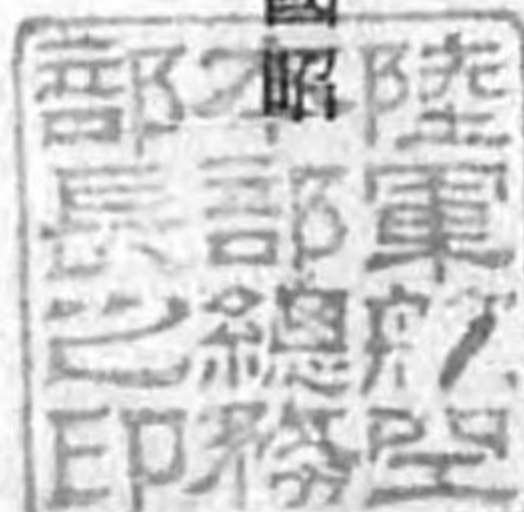 國昭
陸軍航空
本部總務
部長之印